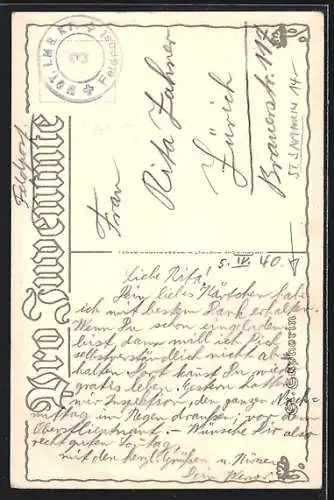 Feldpost.
Pro Juventute
Feldpost
3
Frau
Rita Zahner
Zürich
Brauerstr. 117
5. IV. 40.
Liebe Rita!
Dein liebes Kärtchen habe
ich mit bestem Dank erhalten.
Wenn Du schon eingeladen
bist, dann will ich Dich
selbstverständlich nicht ab-
halten. Dort kannst Du wieder
gratis leben. Gestern hatten
wir Inspektion, den ganzen Nach-
mittag im Regen draussen, vor dem
Oberstleutnant. – Wünsche Dir also
recht guten Sonntag,
mit den herzl. Grüßen u. Küssen
Dein